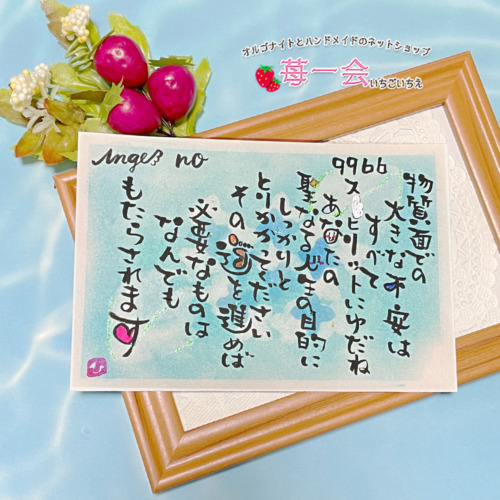 オルゴナイトとハンドメイドのネットショップ
苺一会
いちごいちえ
Angel no
9966
物質面での
大きな不安は
すべて
スピリットにゆだね
あなたの
聖なる人生の目的に
しっかりと
とりかかってください
その道を進めば
必要なものは
なんでも
もたらされます